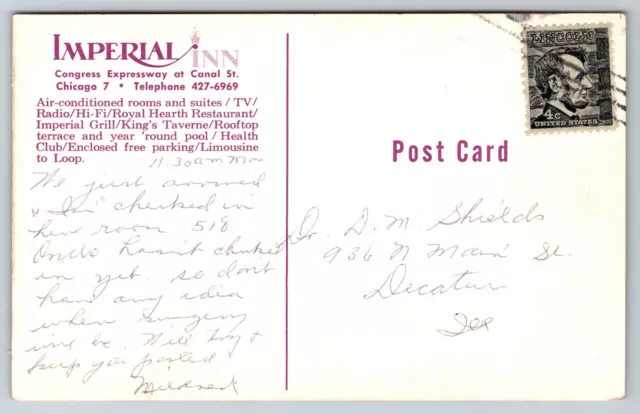 IMPERIAL INN
Congress Expressway at Canal St.
Chicago 7 • Telephone 427-6969
Air-conditioned rooms and suites/TV/
Radio/Hi-Fi/Royal Hearth Restaurant/
Imperial Grill/King's Taverne/Rooftop
terrace and year 'round pool/Health
Club/Enclosed free parking/Limousine
to Loop.
11:30 am Mon
We just arrived
& I'm checked in
here room 518
hasn't checked
in yet. so don't
have any idea
when surgery
will be. Will try &
keep you posted
Mildred
LINCOLN
4c
UNITED STATES
Post Card
Dr. D. M. Shields
936 N. Main St.
Decatur
Ill